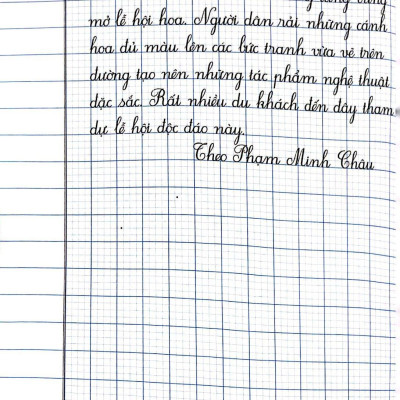 mở lễ hội hoa. Người dân rải những cánh
hoa đủ màu lên các bức tranh vừa vẽ trên
đường tạo nên những tác phẩm nghệ thuật
đặc sắc. Rất nhiều du khách đến đây tham
dự lễ hội độc đáo này.
Theo Phạm Minh Châu